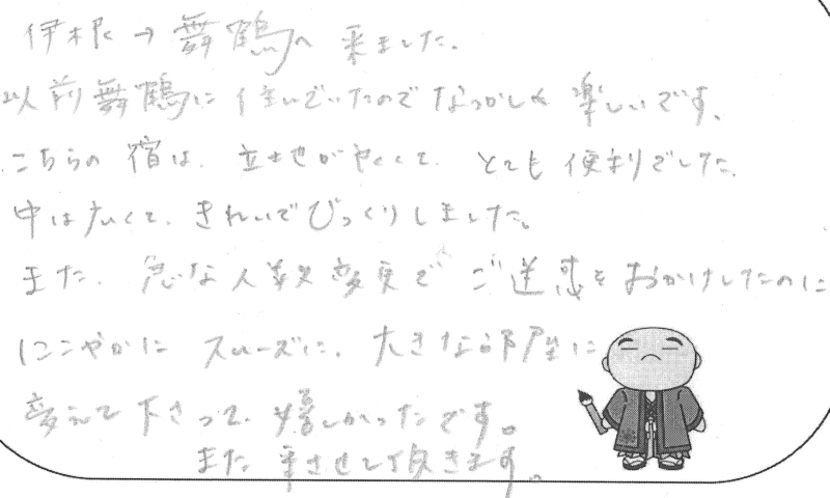 伊根→舞鶴へ来ました。
以前舞鶴に住んでいたのでなつかしく楽しいです。
こちらの宿は、立地がよくて、とても便利でした。
中は広くて、きれいでびっくりしました。
また、急な人数変更でご迷惑をおかけしたのに
にこやかにスムーズに、大きな部屋に
変えて下さって、嬉しかったです。
また来させて頂きます。